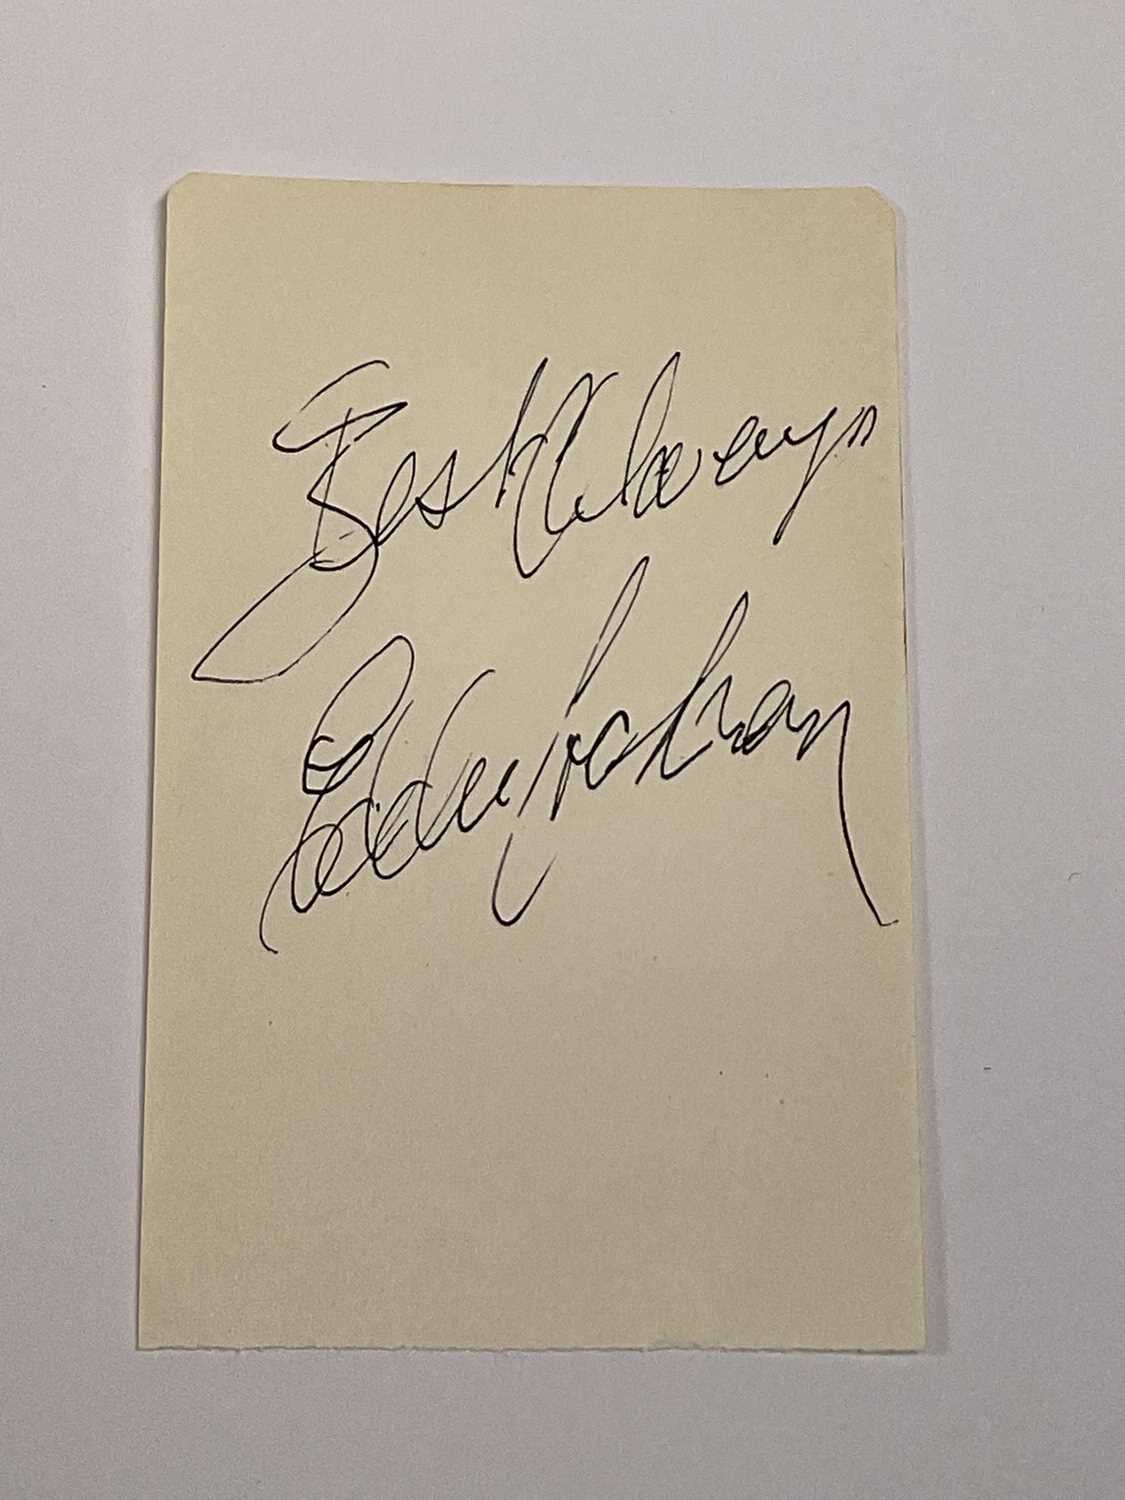 Best Always
Eddie Cochran